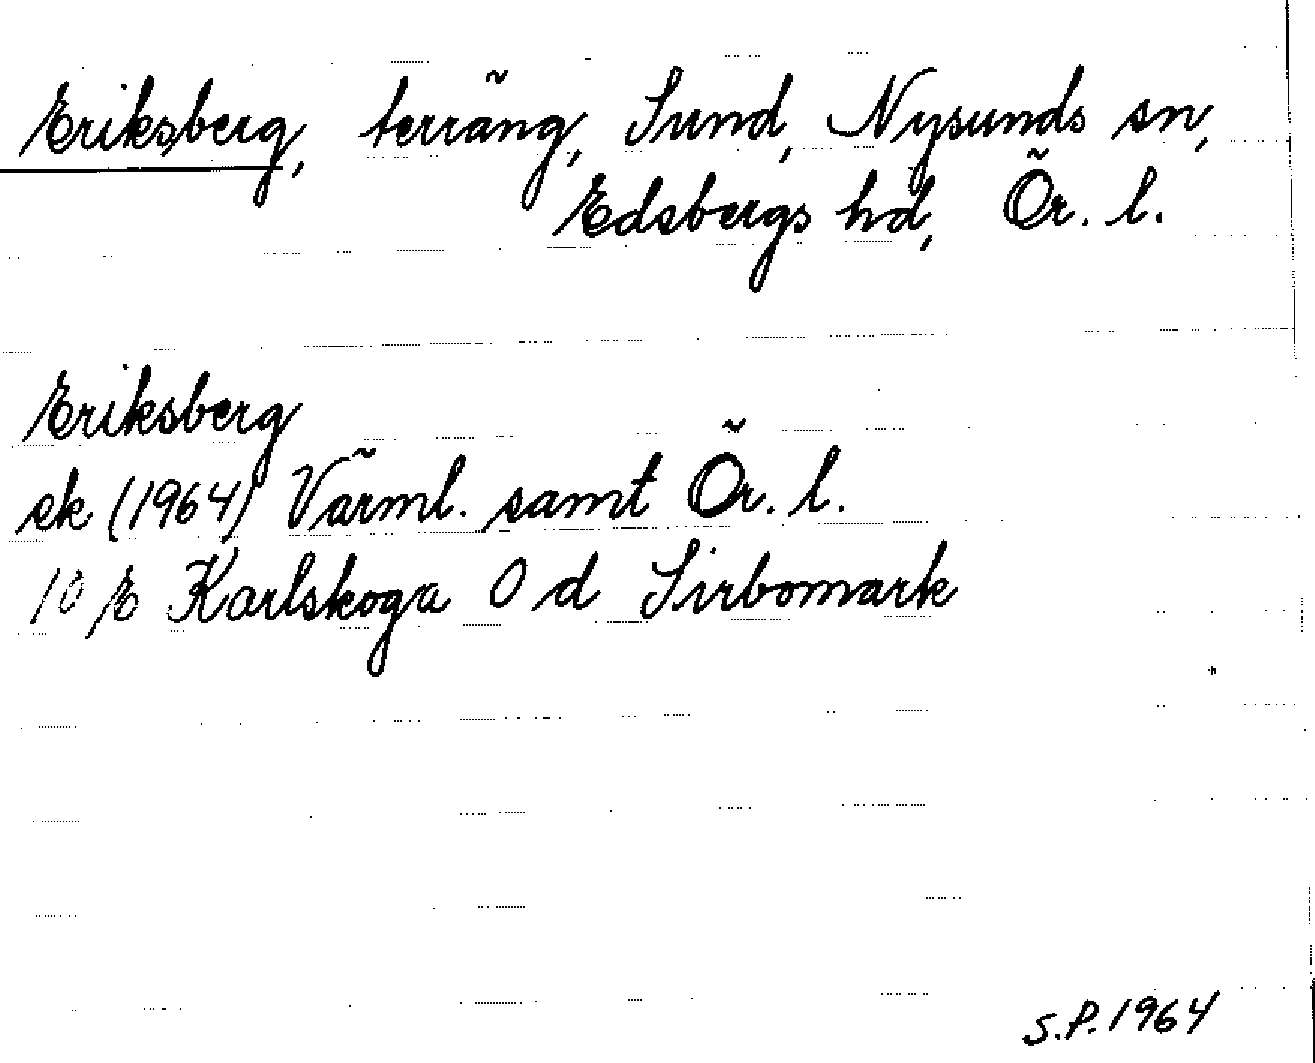 Eriksberg, terräng, Sund, Nysunds sn,
Edsbergs hd, Ör. l.
Eriksberg
ek (1964) Värml. samt Ör. l.
10 E Karlskoga 0 d Sirbomark
S.P. 1964